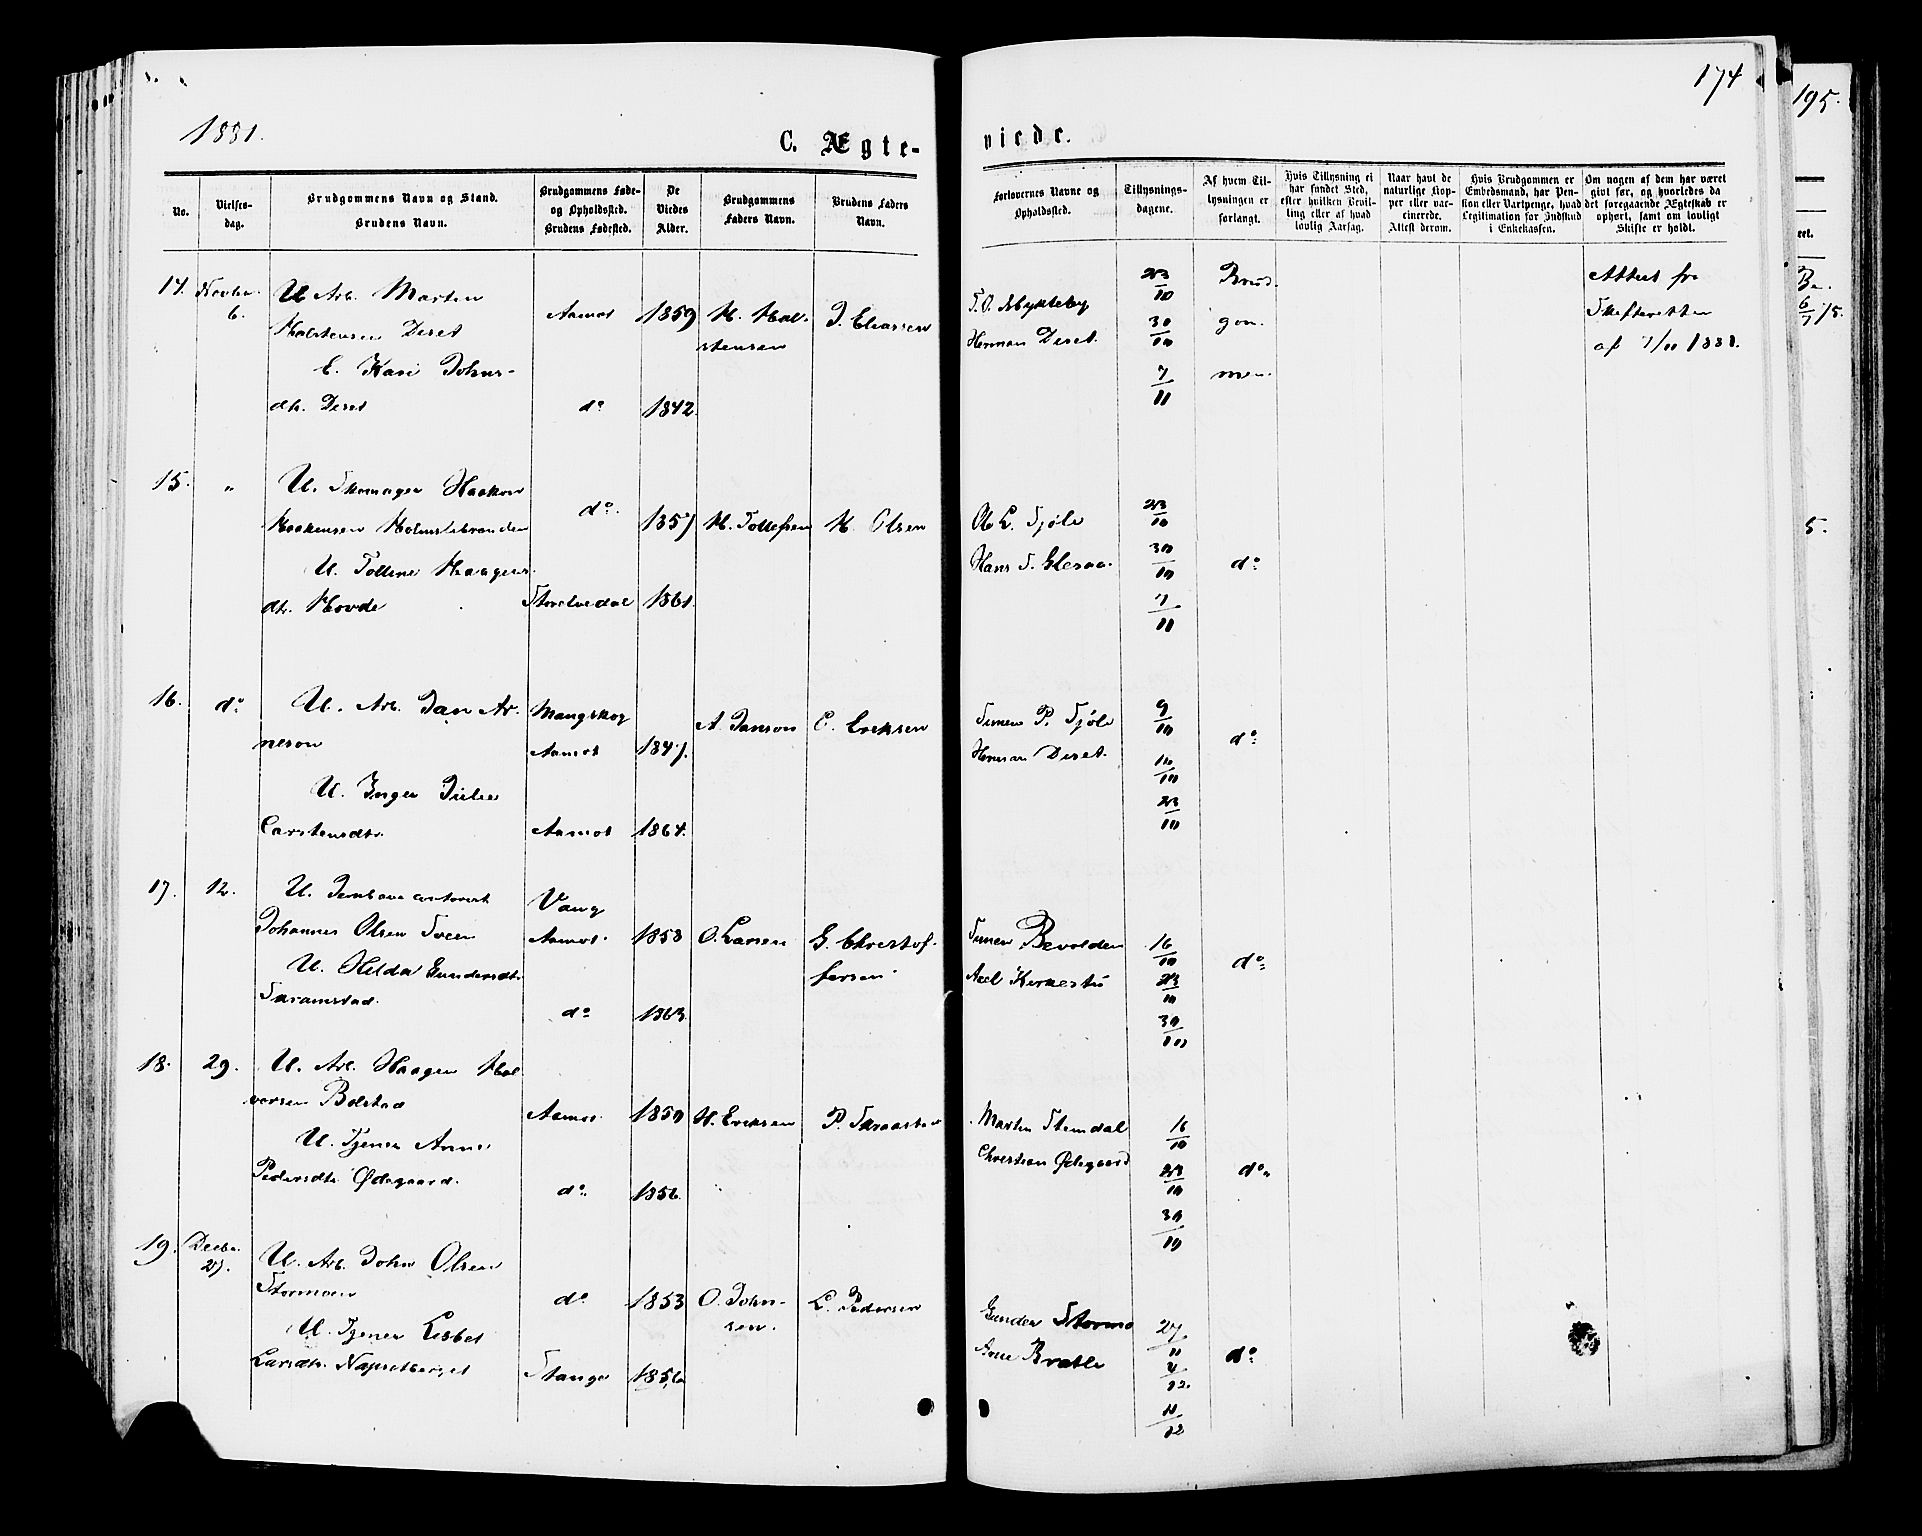 174
195.
1881.
C. Ægte-
viede.
No.
Vielses-
dag.
Brudgommens Navn og Stand.
Brudens Navn.
Brudgommens Føde-
og Opholdsted.
Brudens Fødested.
De
Viedes
Alder.
Brudgommens
Faders Navn.
Brudens Faders
Navn.
Forlovernes Navne og
Opholdssted.
Tillysnings-
dagene.
Af hvem Til-
lysningen er
forlangt.
Hvis Tillysning ei
har fundet Sted,
efter hvilken Bevil-
ling eller af hvad
lovlig Aarsag.
Naar havt de
naturlige Kop-
per eller vac-
cinerede.
Attest derom.
Hvis Brudgommen er
Embedsmand, har Pen-
sion eller Vartpenge, hvad
Legitimation for Indskud
i Enkekassen.
Om nogen af dem har været
gift før, og hvorledes da
det foregaaende Ægteskab er
ophørt, samt om lovligt
Skifte er holdt.
14. Novbr. 6.
U. Arb. Martin
Halstensen Deset
E. Kari Johns-
dtr. Deset
Aamot 1859
do 1842
H. Hal-
stensen
J. Eliassen
T. O. Mykleby
Herman Deset.
23/10
30/10
7/11
Brud-
gom-
men.
Attest fra
Skifteretten
af 7/11 1881.
15. "
U. Skomager Haakon
Haakensen Holmstebranden
U. Tolline Haagens-
dtr. Hovde
do. 1857
Storelvedal 1861.
H. Tollefsen
H. Olsen
Ole L. Sjøli
Hans S. Glesaa.
23/10
30/10
7/11
do
16. do
U. Arb. Jan Ar-
neson
U. Inger Julie
Carstensdtr.
Mangskog
Aamot 1847.
Aamot 1864.
A. Janson
C. Eriksen
Simen P. Sjøli
Herman Deset.
9/10
16/10
23/10
do
17. 12.
U. Jernbane
Johannes Olsen Sveen
U. Hilda Gundersdtr.
Skramstad.
Vang
Aamot. 1858
do 1863
O. Larsen
G. Christof-
fersen.
Simen Bevolden
Axel Kirkestu
16/10
23/10
30/10
do
18. 29.
U. Arb. Haagen Hal-
vorsen Bolstad
U. Tjener Anne
Pedersdtr. Ødegaard.
Aamot. 1859
do. 1856.
H. Eriksen
P. Skraastad
Martin Stemdal
Christian Ødegaard
16/10
23/10
30/10
do
19. Decbr. 27.
U. Arb. John Olsen
Stormoen
U. Tjener Lisbet
Larsdtr. Napsetberget
do 1853
Stange 1856
O. John-
sen.
L. Pedersen
Gunder Stormo
Arne Bratli
27/11
4/12.
11/12
do